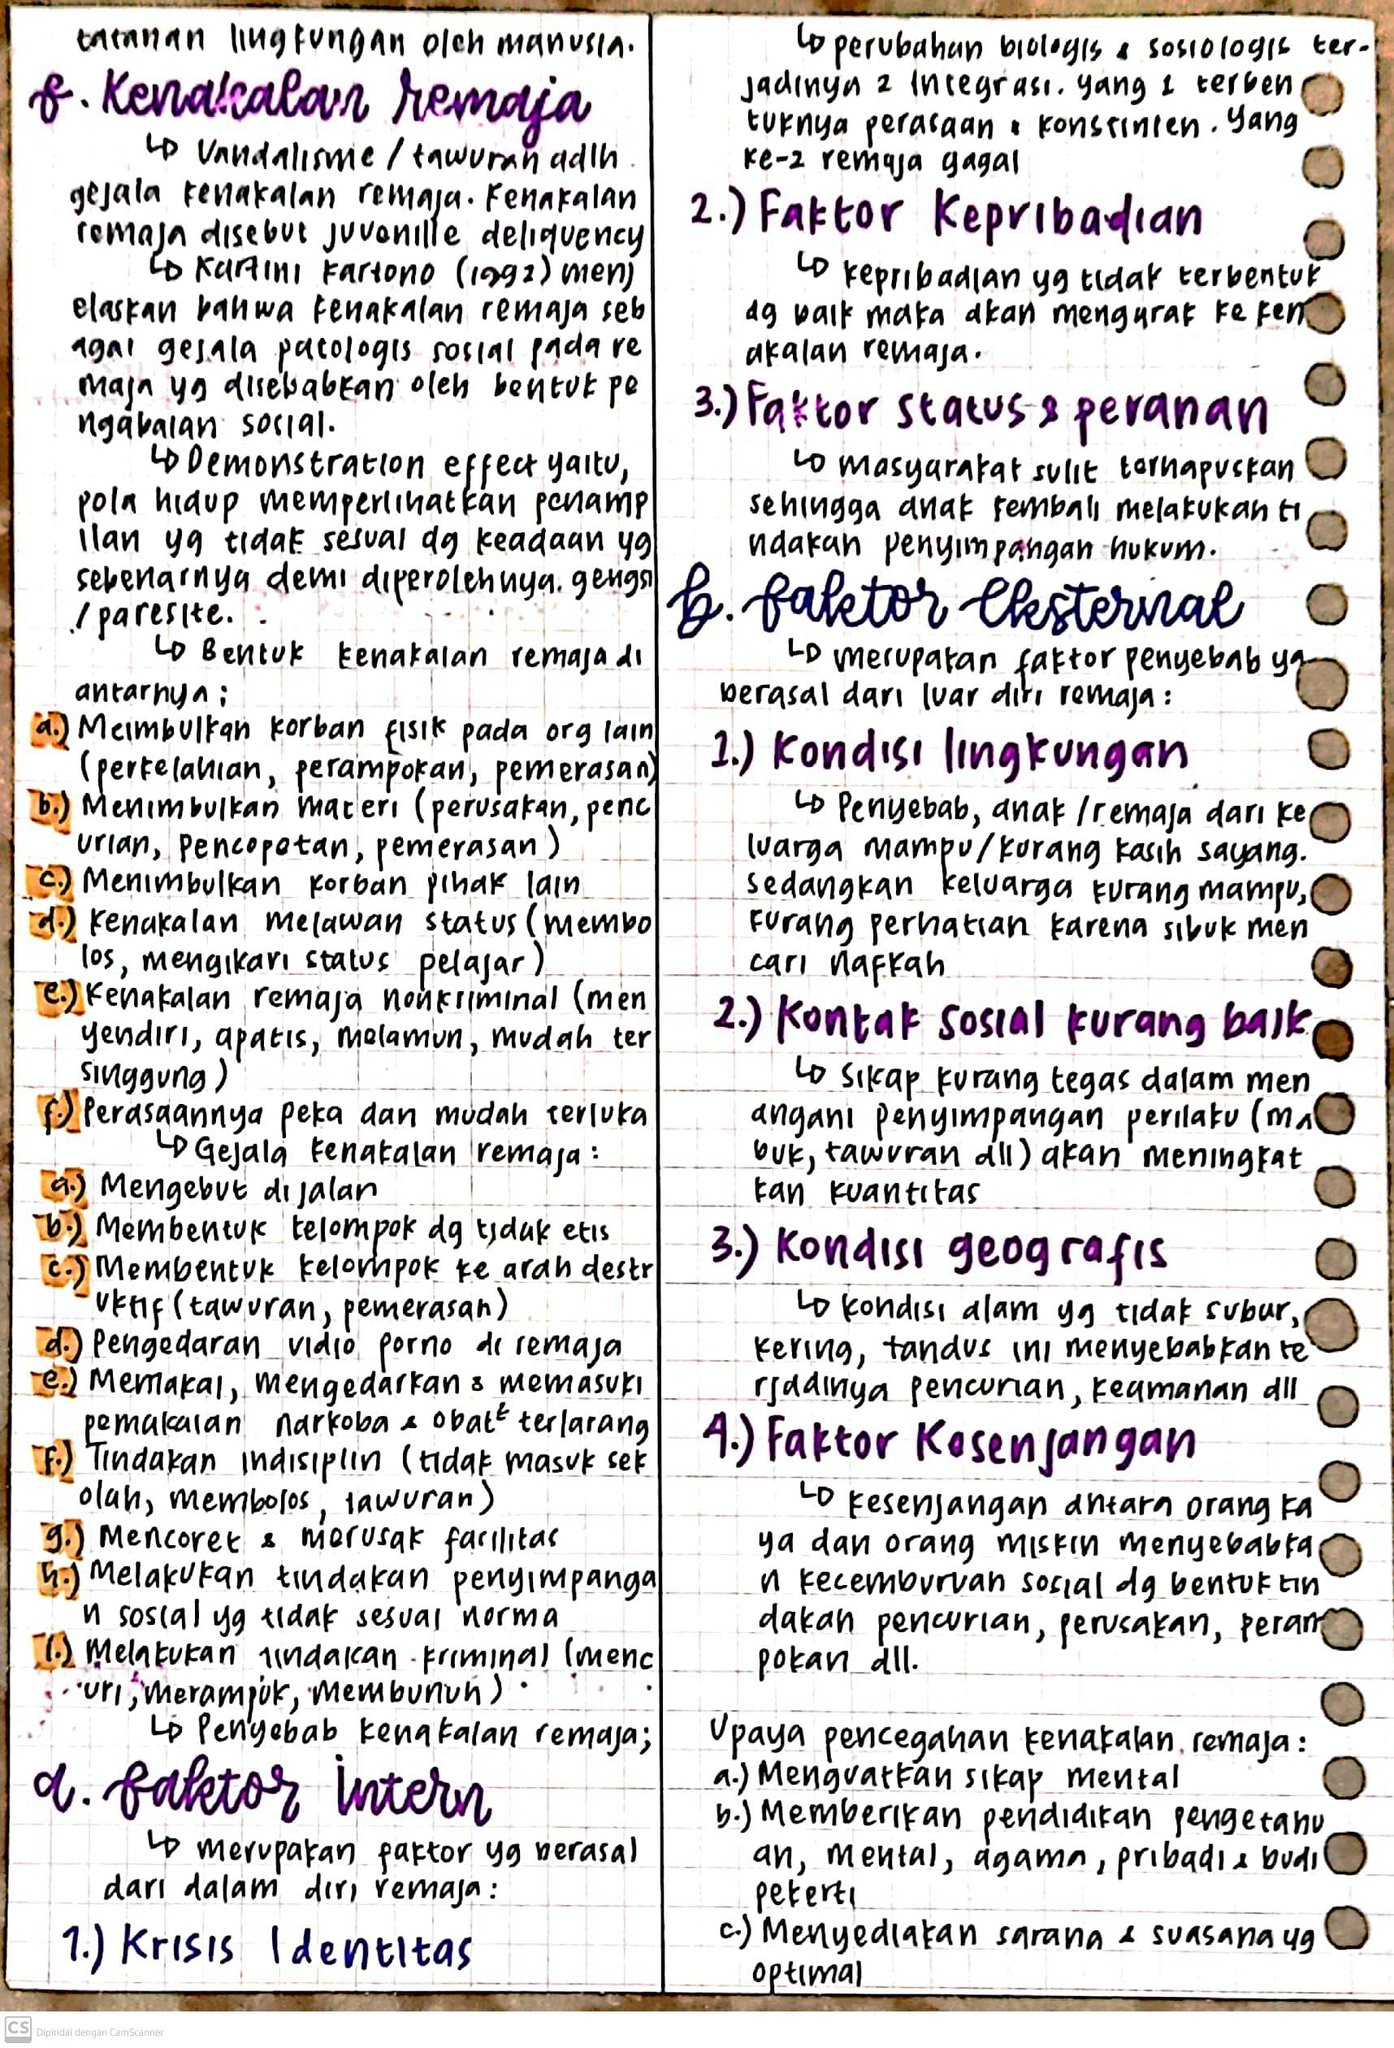 tatanan lingkungan oleh manusia.
f. Kenakalan remaja
↳ Vandalisme / tawuran adlh
gejala kenakalan remaja. Kenakalan
remaja disebut juvenille deliquency
↳ Kartini Kartono (1992) menj
elaskan bahwa kenakalan remaja seb
agai gejala patologis sosial pada re
maja yg disebabkan oleh bentuk pe
ngabaian social.
↳ Demonstration effect yaitu,
pola hidup memperlihatkan penamp
ilan yg tidak sesuai dg keadaan yg
sebenarnya demi diperolehnya. gengsi
/ paresite.
↳ Bentuk kenakalan remaja di
antarnya ;
a.) Meimbulkan korban fisik pada org lain
(perkelahian, perampokan, pemerasan)
b.) Menimbulkan materi (perusakan, penc
urian, pencopetan, pemerasan)
c.) Menimbulkan korban pihak lain
d.) Kenakalan melawan status (membo
los, mengikari status pelajar)
e.) Kenakalan remaja nonkriminal (men
yendiri, apatis, melamun, mudah ter
singgung)
f.) Perasaannya peka dan mudah terluka
↳ Gejala kenakalan remaja :
a.) Mengebut di jalan
b.) Membentuk kelompok dg tidak etis
c.) Membentuk kelompok ke arah destr
uktif (tawuran, pemerasan)
d.) Pengedaran vidio porno di remaja
e.) Memakai, mengedarkan & memasuki
pemakaian narkoba & obat² terlarang
f.) Tindakan indisiplin (tidak masuk sek
olah, membolos, tawuran)
g.) Mencoret & merusak facilitas
h.) Melakukan tindakan penyimpanga
n sosial yg tidak sesuai norma
i.) Melakukan tindakan kriminal (menc
uri, merampok, membunuh)
↳ Penyebab kenakalan remaja;
a. Faktor intern
↳ merupakan faktor yg berasal
dari dalam diri remaja :
1.) Krisis Identitas
↳ perubahan biologis & sosiologis ter-
jadinya 2 integrasi. yang 1 terben
tuknya perasaan & konsinten. Yang
ke-2 remaja gagal
2.) Faktor Kepribadian
↳ kepribadian yg tidak terbentuk
dg baik maka akan mengarak ke ken
akalan remaja.
3.) Faktor status & peranan
↳ masyarakat sulit terhapuskan
sehingga anak kembali melakukan ti
ndakan penyimpangan hukum.
b. Faktor Eksternal
↳ merupakan faktor penyebab yg
berasal dari luar diri remaja :
1.) Kondisi lingkungan
↳ Penyebab, anak / remaja dari ke
luarga mampu/kurang kasih sayang.
sedangkan keluarga kurang mampu,
kurang perhatian karena sibuk men
cari nafkah
2.) Kontak sosial kurang baik
↳ Sikap kurang tegas dalam men
angani penyimpangan perilaku (ma
buk, tawuran dll) akan meningkat
kan kuantitas
3.) Kondisi geografis
↳ kondisi alam yg tidak subur,
kering, tandus ini menyebabkan te
rjadinya pencurian, keamanan dll
4.) Faktor Kesenjangan
↳ kesenjangan antara orang ka
ya dan orang miskin menyebabka
n kecemburuan sosial dg bentuk tin
dakan pencurian, perusakan, peram
pokan dll.
Upaya pencegahan kenakalan remaja :
a.) Menguatkan sikap mental
b.) Memberikan pendidikan pengetahu
an, mental, agama, pribadi & budi
pekerti
c.) Menyediakan sarana & suasana yg
optimal
CS Dipindai dengan CamScanner